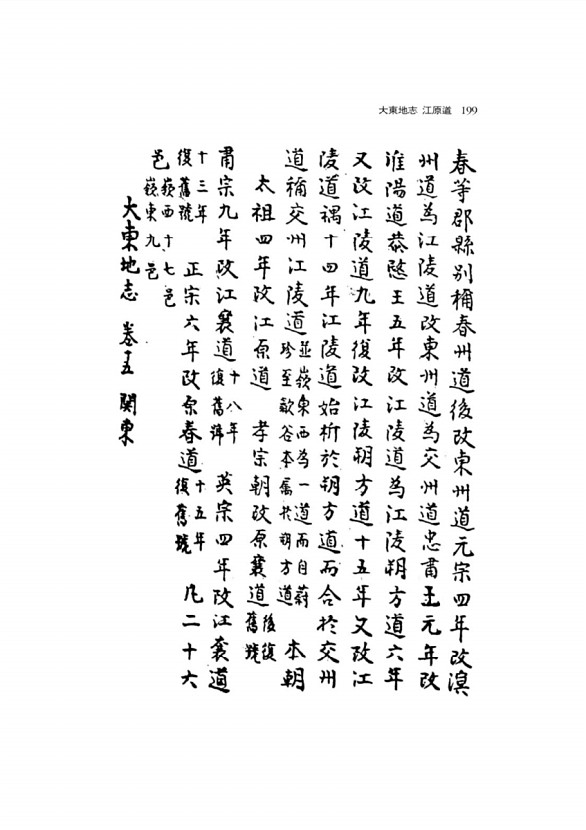 大東地志 江原道 199
春等郡縣別稱春州道後改東州道元宗四年改溟
州道為江陵道改東州道為交州道忠肅王元年改
淮陽道恭愍王五年改江陵道為江陵朔方道六年
又改江陵道九年復改江陵朔方道十五年又改江
陵道禑十四年江陵道始析於朔方道而合於交州
道稱交州江陵道 並嶺東西為一道而自蔚珍至歙谷本属於朔方道 本朝
太祖四年改江原道 孝宗朝改原襄道 後復舊號
肅宗九年改江襄道 十八年復舊號 英宗四年改江襄道
十三年復舊號 正宗六年改原春道 十五年復舊號 凡二十六
邑 嶺西十七邑嶺東九邑
大東地志 卷五 關東